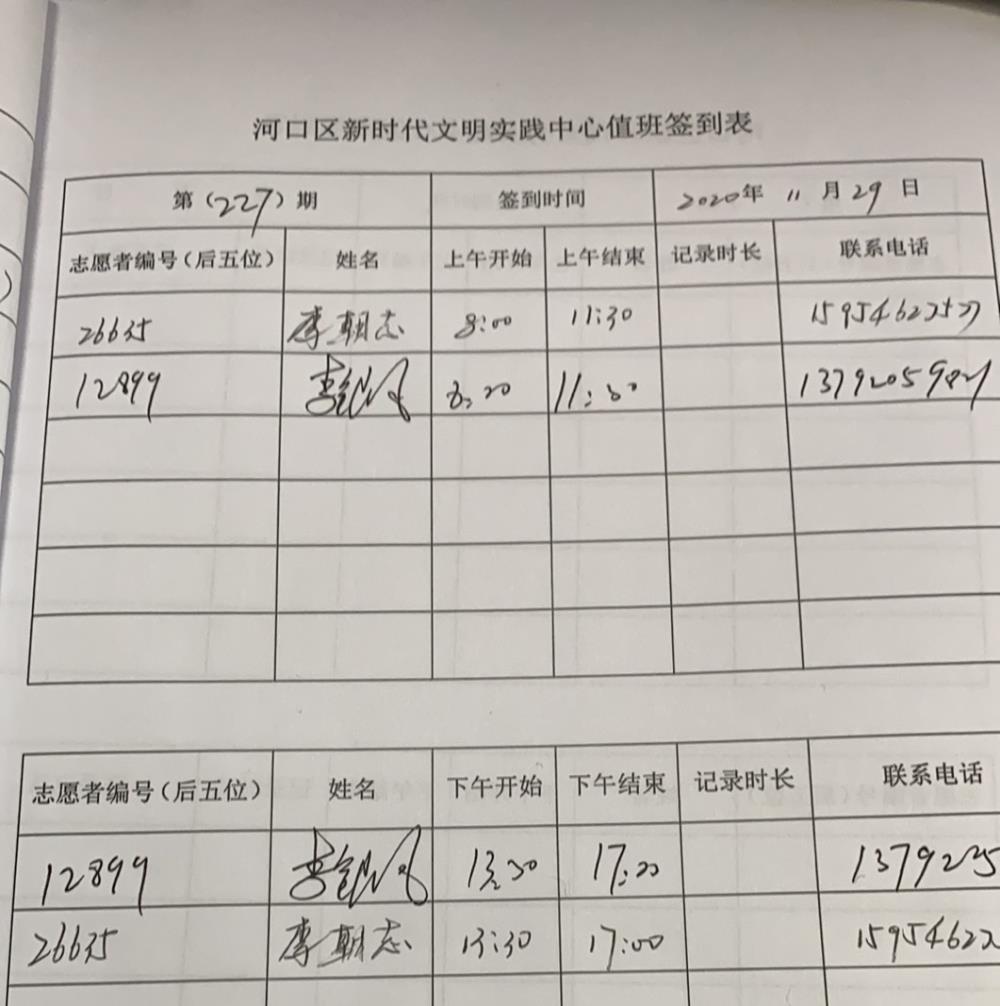 河口区新时代文明实践中心值班签到表
第（227）期 签到时间 2020年 11月 29日
志愿者编号（后五位） 姓名 上午开始 上午结束 记录时长 联系电话
26635 李朝志 8:00 11:30
12899 李 11:30
志愿者编号（后五位） 姓名 下午开始 下午结束 记录时长 联系电话
12899 李 13:30 17:00
26635 李朝志 13:30 17:00 15954622